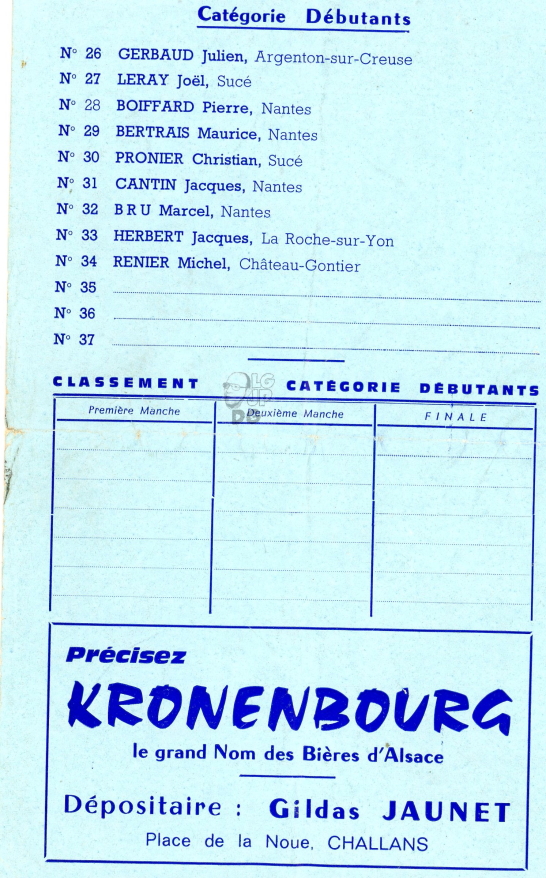 Catégorie Débutants
N° 26 GERBAUD Julien, Argenton-sur-Creuse
N° 27 LERAY Joël, Sucé
N° 28 BOIFFARD Pierre, Nantes
N° 29 BERTRAIS Maurice, Nantes
N° 30 PRONIER Christian, Sucé
N° 31 CANTIN Jacques, Nantes
N° 32 BRU Marcel, Nantes
N° 33 HERBERT Jacques, La Roche-sur-Yon
N° 34 RENIER Michel, Château-Gontier
N° 35
N° 36
N° 37
CLASSEMENT CATÉGORIE DÉBUTANTS
LG
JP
DG
Première Manche Deuxième Manche FINALE
Précisez
KRONENBOURG
le grand Nom des Bières d'Alsace
Dépositaire : Gildas JAUNET
Place de la Noue, CHALLANS